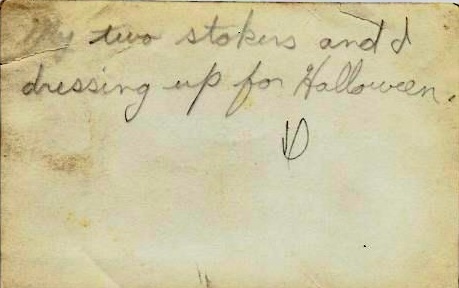 My two stokers and I
dressing up for Halloween.